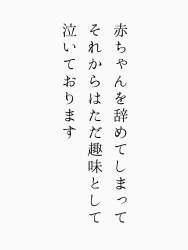 赤ちゃんを辞めてしまって
それからはただ趣味として
泣いております